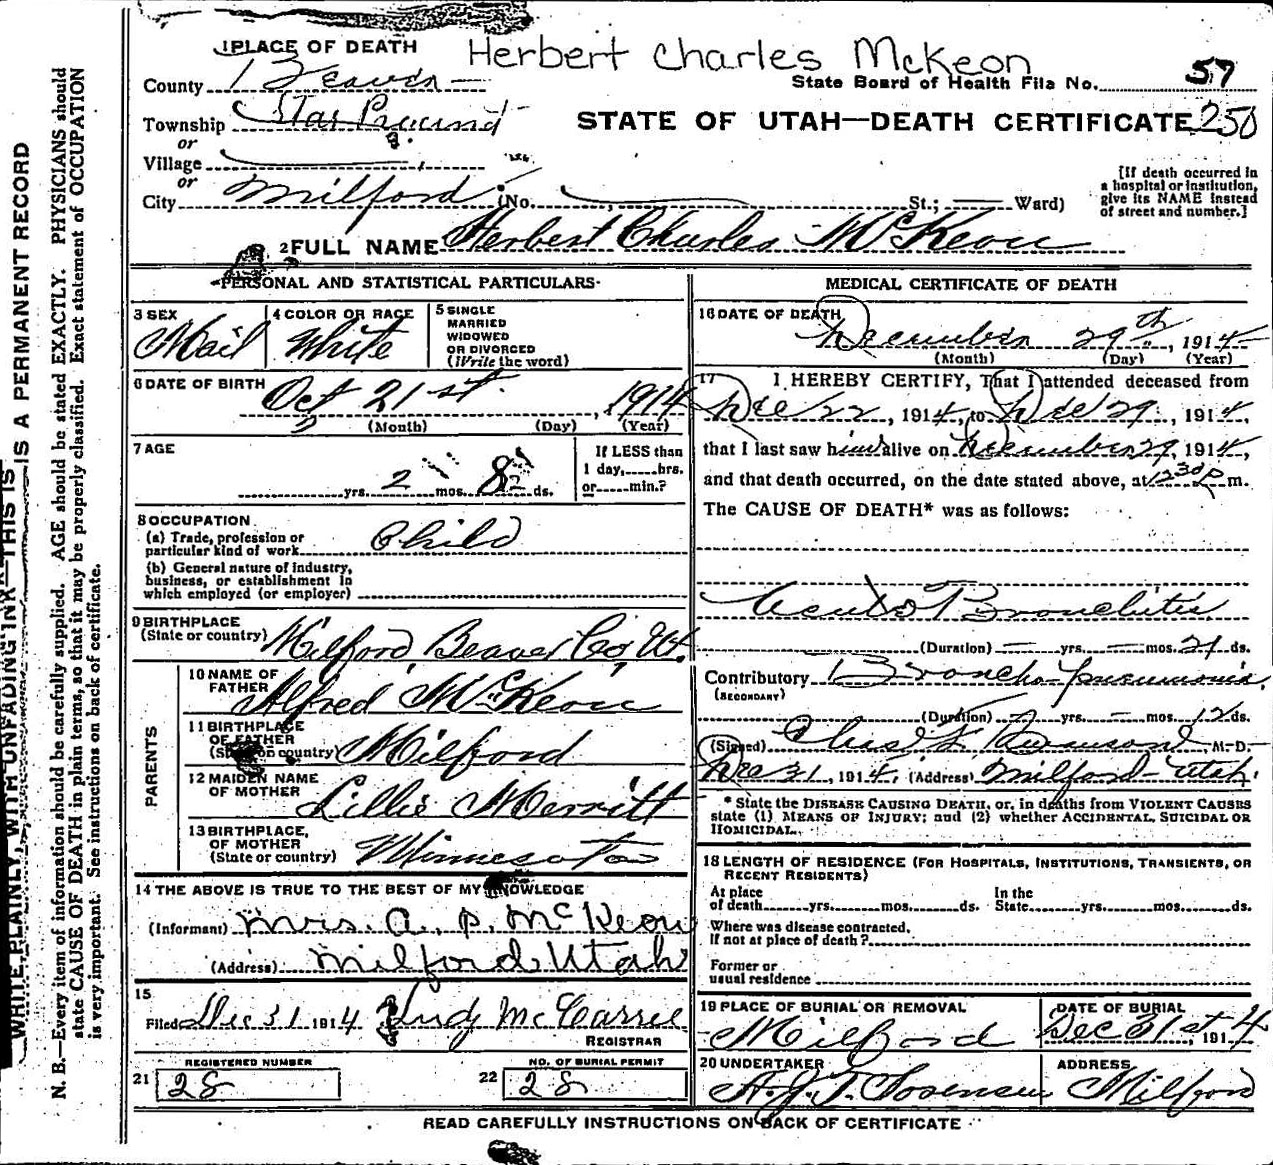 Herbert Charles McKeon
1 PLACE OF DEATH
County Beaver
State Board of Health File No. 57
Township Star Precinct
STATE OF UTAH—DEATH CERTIFICATE 250
or
Village
or
City Milford (No. St.; Ward)
[If death occurred in
a hospital or institution,
give its NAME instead
of street and number.]
2 FULL NAME Herbert Charles McKeon
PERSONAL AND STATISTICAL PARTICULARS
3 SEX
Mail
4 COLOR OR RACE
White
5 SINGLE
MARRIED
WIDOWED
OR DIVORCED
(Write the word)
6 DATE OF BIRTH
Oct 21st, 1914
(Month) (Day) (Year)
7 AGE
yrs. 2 mos. 8 ds.
If LESS than
1 day, hrs.
or min.?
8 OCCUPATION
(a) Trade, profession or
particular kind of work Child
(b) General nature of industry,
business, or establishment in
which employed (or employer)
9 BIRTHPLACE
(State or country) Milford Beaver Co, Ut.
PARENTS
10 NAME OF
FATHER Alfred McKeon
11 BIRTHPLACE
OF FATHER
(State or country) Milford
12 MAIDEN NAME
OF MOTHER Lillie Merritt
13 BIRTHPLACE,
OF MOTHER
(State or country) Minnesota
14 THE ABOVE IS TRUE TO THE BEST OF MY KNOWLEDGE
(Informant) Mrs. A. P. McKeon
(Address) Milford Utah
15
Filed Dec 31 1914 McGarry
REGISTRAR
REGISTERED NUMBER
21 28
NO. OF BURIAL PERMIT
22 28
MEDICAL CERTIFICATE OF DEATH
16 DATE OF DEATH
December 29th, 1914
(Month) (Day) (Year)
17 I HEREBY CERTIFY, That I attended deceased from
Dec 22, 1914, to Dec 29, 1914,
that I last saw him alive on December 29, 1914,
and that death occurred, on the date stated above, at 12 30 P m.
The CAUSE OF DEATH* was as follows:
Acute Bronchitis
(Duration) yrs. mos. 21 ds.
Contributory Broncho-pneumonia
(SECONDARY)
(Duration) yrs. mos. 12 ds.
(Signed) Chas. M. D.
Dec 31, 1914. (Address) Milford Utah.
* State the DISEASE CAUSING DEATH, or, in deaths from VIOLENT CAUSES
state (1) MEANS OF INJURY; and (2) whether ACCIDENTAL, SUICIDAL OR
HOMICIDAL.
18 LENGTH OF RESIDENCE (FOR HOSPITALS, INSTITUTIONS, TRANSIENTS, OR
RECENT RESIDENTS)
At place
of death yrs. mos. ds.
In the
State yrs. mos. ds.
Where was disease contracted,
If not at place of death?
Former or
usual residence
19 PLACE OF BURIAL OR REMOVAL
Milford
DATE OF BURIAL
Dec 31st, 1914
20 UNDERTAKER
Sorensen
ADDRESS
Milford
READ CAREFULLY INSTRUCTIONS ON BACK OF CERTIFICATE
WRITE PLAINLY, WITH UNFADING INK—THIS IS A PERMANENT RECORD
N. B.—Every item of information should be carefully supplied. AGE should be stated EXACTLY. PHYSICIANS should
state CAUSE OF DEATH in plain terms, so that it may be properly classified. Exact statement of OCCUPATION
is very important. See instructions on back of certificate.